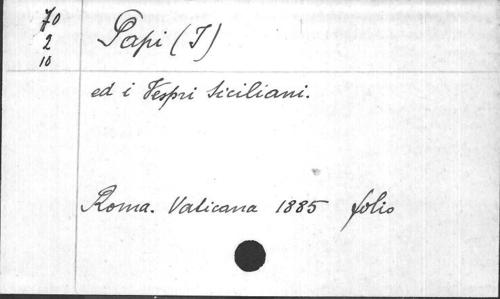 70
2
10
Papi (I)
ed i Vespri Siciliani.
Roma. Vaticana 1885 folio